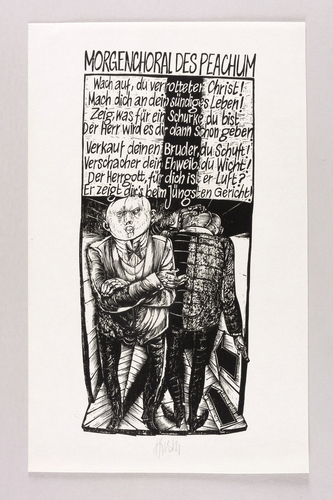 MORGENCHORAL DES PEACHUM
Wach auf, du verrotteter Christ!
Mach dich an dein sündiges Leben!
Zeig was für ein Schurke du bist
Der Herr wird es dir dann schon geben.
Verkauf deinen Bruder, du Schuft!
Verschacher dein Ehweib, du Wicht!
Der Herrgott, für dich ist er Luft?
Er zeigt dir's beim Jüngsten Gericht!